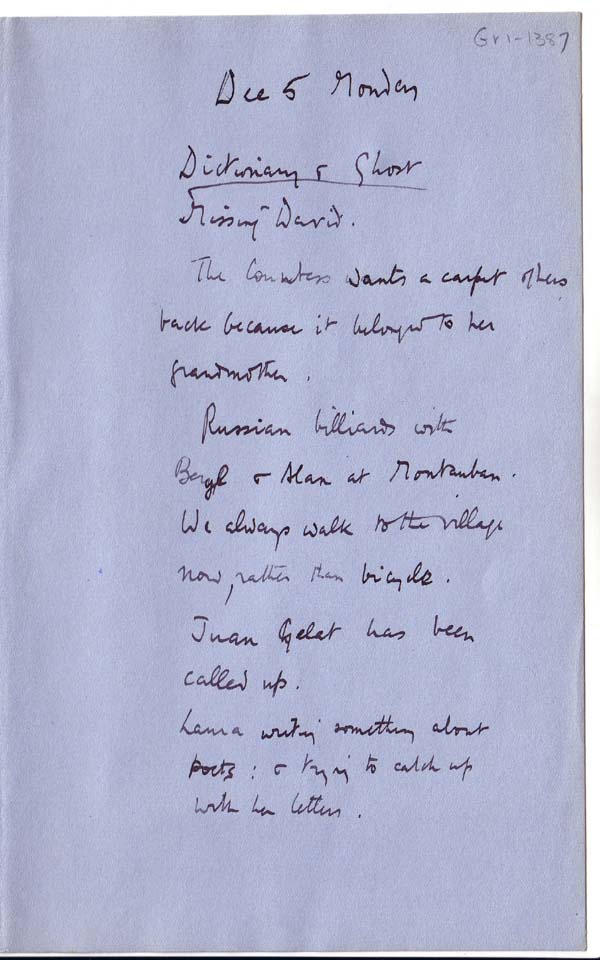 Gr1-1387
Dec 5 Monday
Dictionary & Ghost
Missing David.
The Countess wants a carpet of hers
back because it belonged to her
grandmother.
Russian billiards with
Beryl & Alan at Montauban.
We always walk to the village
now, rather than bicycle.
Juan Gelat has been
called up.
Laura writing something about
poets: & trying to catch up
with her letters.